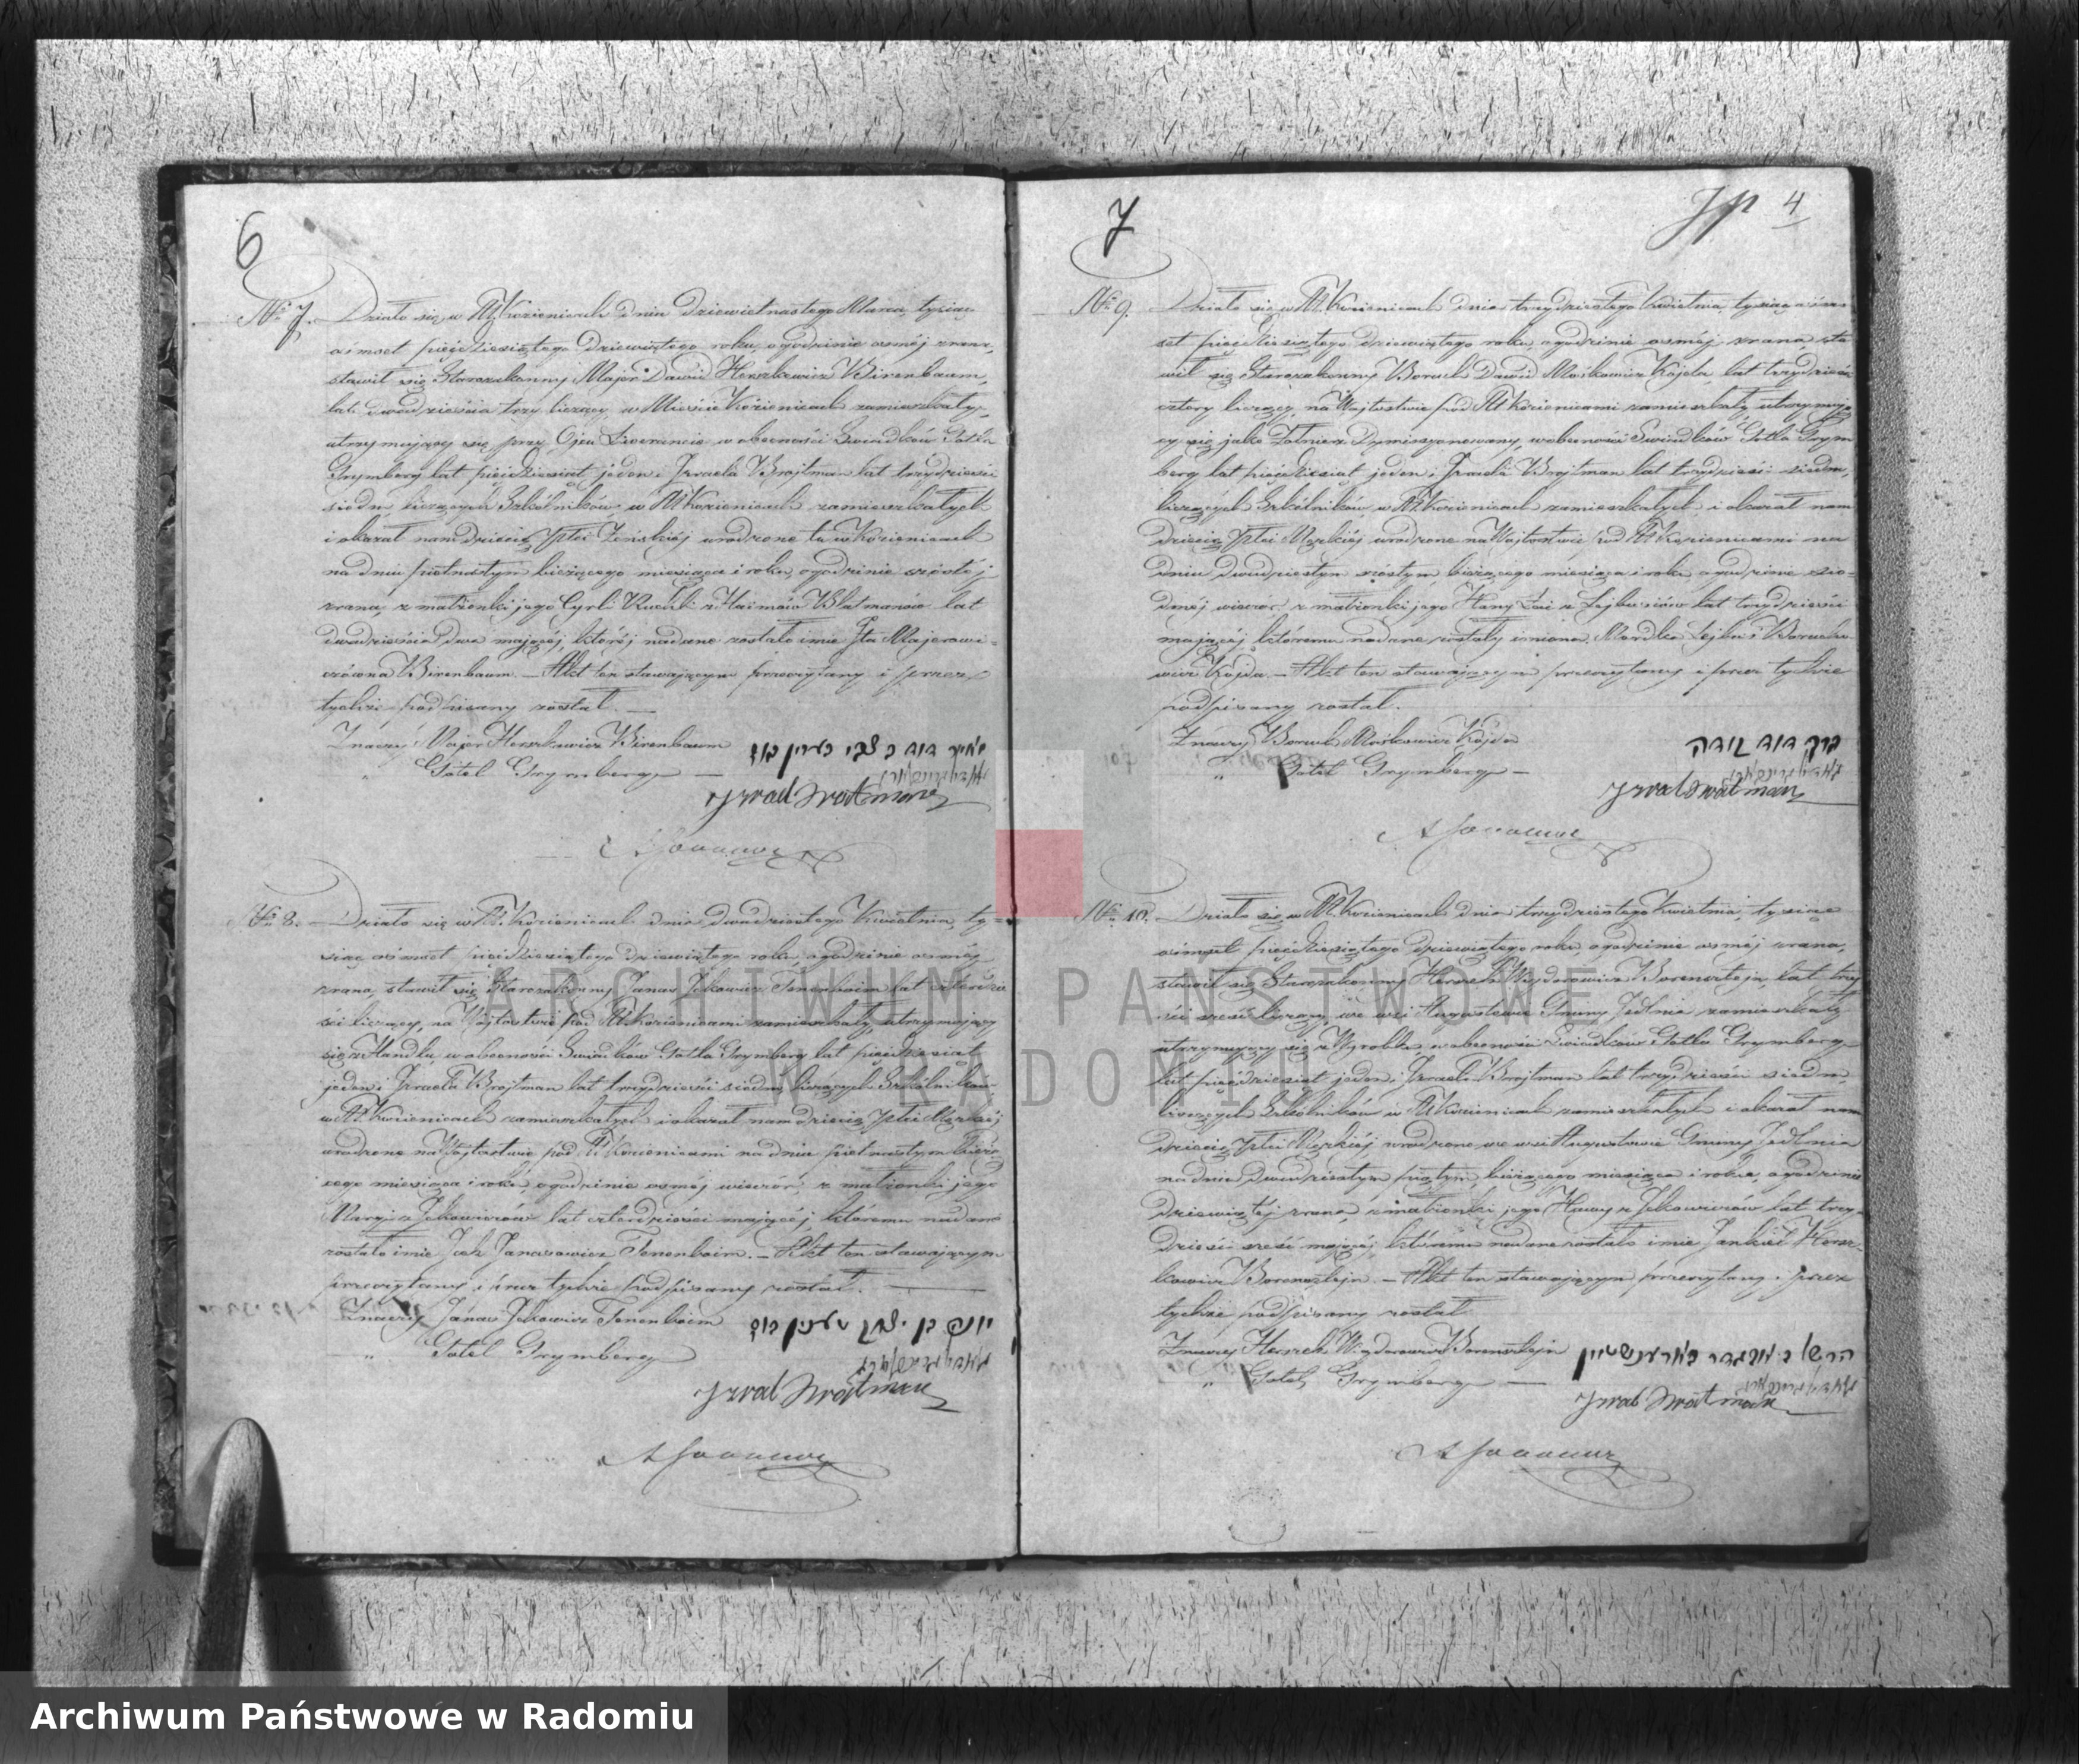 6
No 7. Działo się w M. Kozienicach dnia dziewiętnastego Marca, tysiąc
ośmset pięćdziesiątego dziewiątego roku, o godzinie ósmej zrana,
stawił się Starozakonny Major Dawid Herszkowicz Birenbaum,
lat dwadzieścia trzy liczący, w Mieście Kozienicach zamieszkały,
utrzymujący się przy Ojcu Liwerancie, w obecności Świadków Gotla
Grymberg lat pięćdziesiąt jeden i Izraela Brojtman lat trzydzieści
siedm, liczących Szkólników, w M. Kozienicach zamieszkałych
i okazał nam dziecię płci Żeńskiéj urodzone tu w Kozienicach
na dniu piętnastym bieżącego miesiąca i roku, o godzinie szóstéj
zrana, z małżonki jego Cyrli Ruchli z Haimów Blatmanów lat
dwadzieścia dwa mającéj, któréj nadane zostało imie Ita Majerowi-
czówna Birenbaum. — Akt ten stawającym przeczytany i przez
tychże podpisany został. —
Znaczy Major Herszkowicz Birenbaum
" Gotel Grymberg —
Izrael Brotman
No 8. Działo się w M. Kozienicach dnia dwudziestego Kwietnia, ty-
siąc ośmset pięćdziesiątego dziewiątego roku, o godzinie ósméj
zrana, stawił się Starozakonny Janas Ickowicz Tenenboim lat czterdzie
ści liczący, na Wójtostwie pod M. Kozienicami zamieszkały, utrzymujący
się z Handlu, w obecności Świadków Gotla Grymberg lat pięćdziesiąt
jeden i Izraela Brojtman lat trzydzieści siedm, liczących Szkólników
w M. Kozienicach zamieszkałych i okazał nam dziecię płci Męzkiéj
urodzone na Wójtostwie pod M. Kozienicami na dniu piętnastym bieżą
cego miesiąca i roku, o godzinie ósméj wieczór, z małżonki jego
z Ickowiczów lat czterdzieści mającéj, któremu nadane
zostało imie Icek Janasowicz Tenenboim. — Akt ten stawającym
przeczytany i przez tychże podpisany został. —
Znaczy Janas Ickowicz Tenenboim
" Gotel Grymberg
Izrael Brotman
7
4
No 9. Działo się w M. Kozienicach dnia trzydziestego Kwietnia, tysiąc ośm
set pięćdziesiątego dziewiątego roku, o godzinie ósméj zrana, sta
wił się Starozakonny Boruch Dawid Mośkowicz Kojda, lat trzydzieści
cztery liczący, na Wójtostwie pod M. Kozienicami zamieszkały, utrzymują
cy się jako Żołnierz Dymissyonowany, w obecności Świadków Gotla Grym
berg lat pięćdziesiąt jeden i Izraela Brojtman lat trzydzieści siedm,
liczących Szkólników w M. Kozienicach zamieszkałych i okazał nam
dziecię płci Męzkiéj urodzone na Wójtostwie pod M. Kozienicami na
dniu dwudziestym szóstym bieżącego miesiąca i roku o godzinie sió-
dméj wieczór z małżonki jego Hany z Lejbusiów lat trzydzieści
mającéj, któremu nadane zostały imiona Mordka Lejbuś Borucho-
wicz Kojda. — Akt ten stawającym przeczytany i przez tychże
podpisany został.
Znaczy Boruch Mośkowicz Kojda
" Gotel Grymberg —
ברך דוד קודה
Izrael Brotman
No 10. Działo się w M. Kozienicach dnia trzydziestego Kwietnia, tysiąc
ośmset pięćdziesiątego dziewiątego roku, o godzinie ósméj zrana,
stawił się Starozakonny Herszek Wigdorowicz Borensztejn, lat trzy
ści sześć liczący, we wsi Augustowie Gminy Jedlnia zamieszkały
utrzymujący się z Wyrobku, w obecności Świadków Gotla Grymberg
lat pięćdziesiąt jeden i Izraela Brojtman lat trzydzieści siedm,
liczących Szkólników w M. Kozienicach zamieszkałych i okazał nam
dziecię płci Męzkiéj urodzone we wsi Augustowie Gminy Jedlnia
na dniu dwudziestym piątym bieżącego miesiąca i roku, o godzinie
dziewiątéj zrana, z małżonki jego Hawy z Ickowiczów lat trzy-
dzieści sześć mającéj, któremu nadane zostało imie Jankiel Hersz-
kowicz Borensztejn. — Akt ten stawającym przeczytany i przez
tychże podpisany został
Znaczy Herszek Wigdorowicz Borensztejn
" Gotel Grymberg —
Izrael Brotman
ARCHIWUM PAŃSTWOWE
W RADOMIU
Archiwum Państwowe w Radomiu